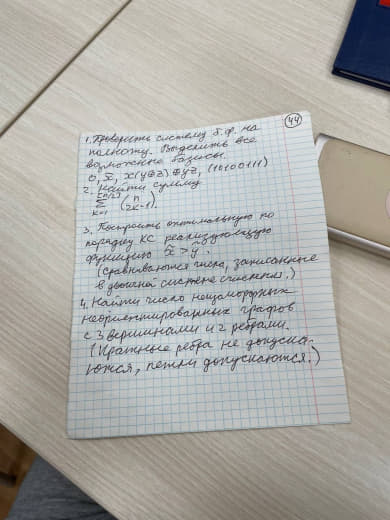 44
1. Проверить систему б.ф. на
полноту. Выделить все
возможные базисы.
0, x̄, x(y⊕z)⊕yz, (10100111)
2. Найти сумму
∑ₖ₌₁^[n/2] (n 2k-1).
3. Построить оптимальную по
порядку КС реализующую
функцию x̃ > ỹ.
(Сравниваются числа, записанные
в двоичной системе счисления.)
4. Найти число неизоморфных
неориентированных графов
с 3 вершинами и 2 ребрами.
(Кратные ребра не допуска-
ются, петли допускаются.)